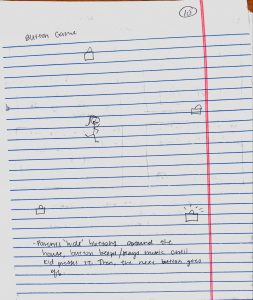 10
Button Game
- Parents "hide" buttons around the
house, button beeps/plays music until
kid presses it. Then, the next button goes
off.